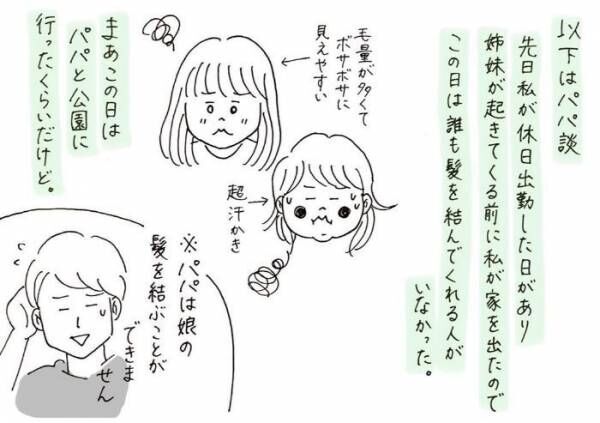 以下はパパ談
先日私が休日出勤した日があり
姉妹が起きてくる前に私が家を出たので
この日は誰も髪を結んでくれる人が
いなかった。
毛量が多くて
ボサボサに
見えやすい
超汗かき
まあこの日は
パパと公園に
行ったくらいだけど。
※パパは娘の
髪を結ぶことが
できま
せん